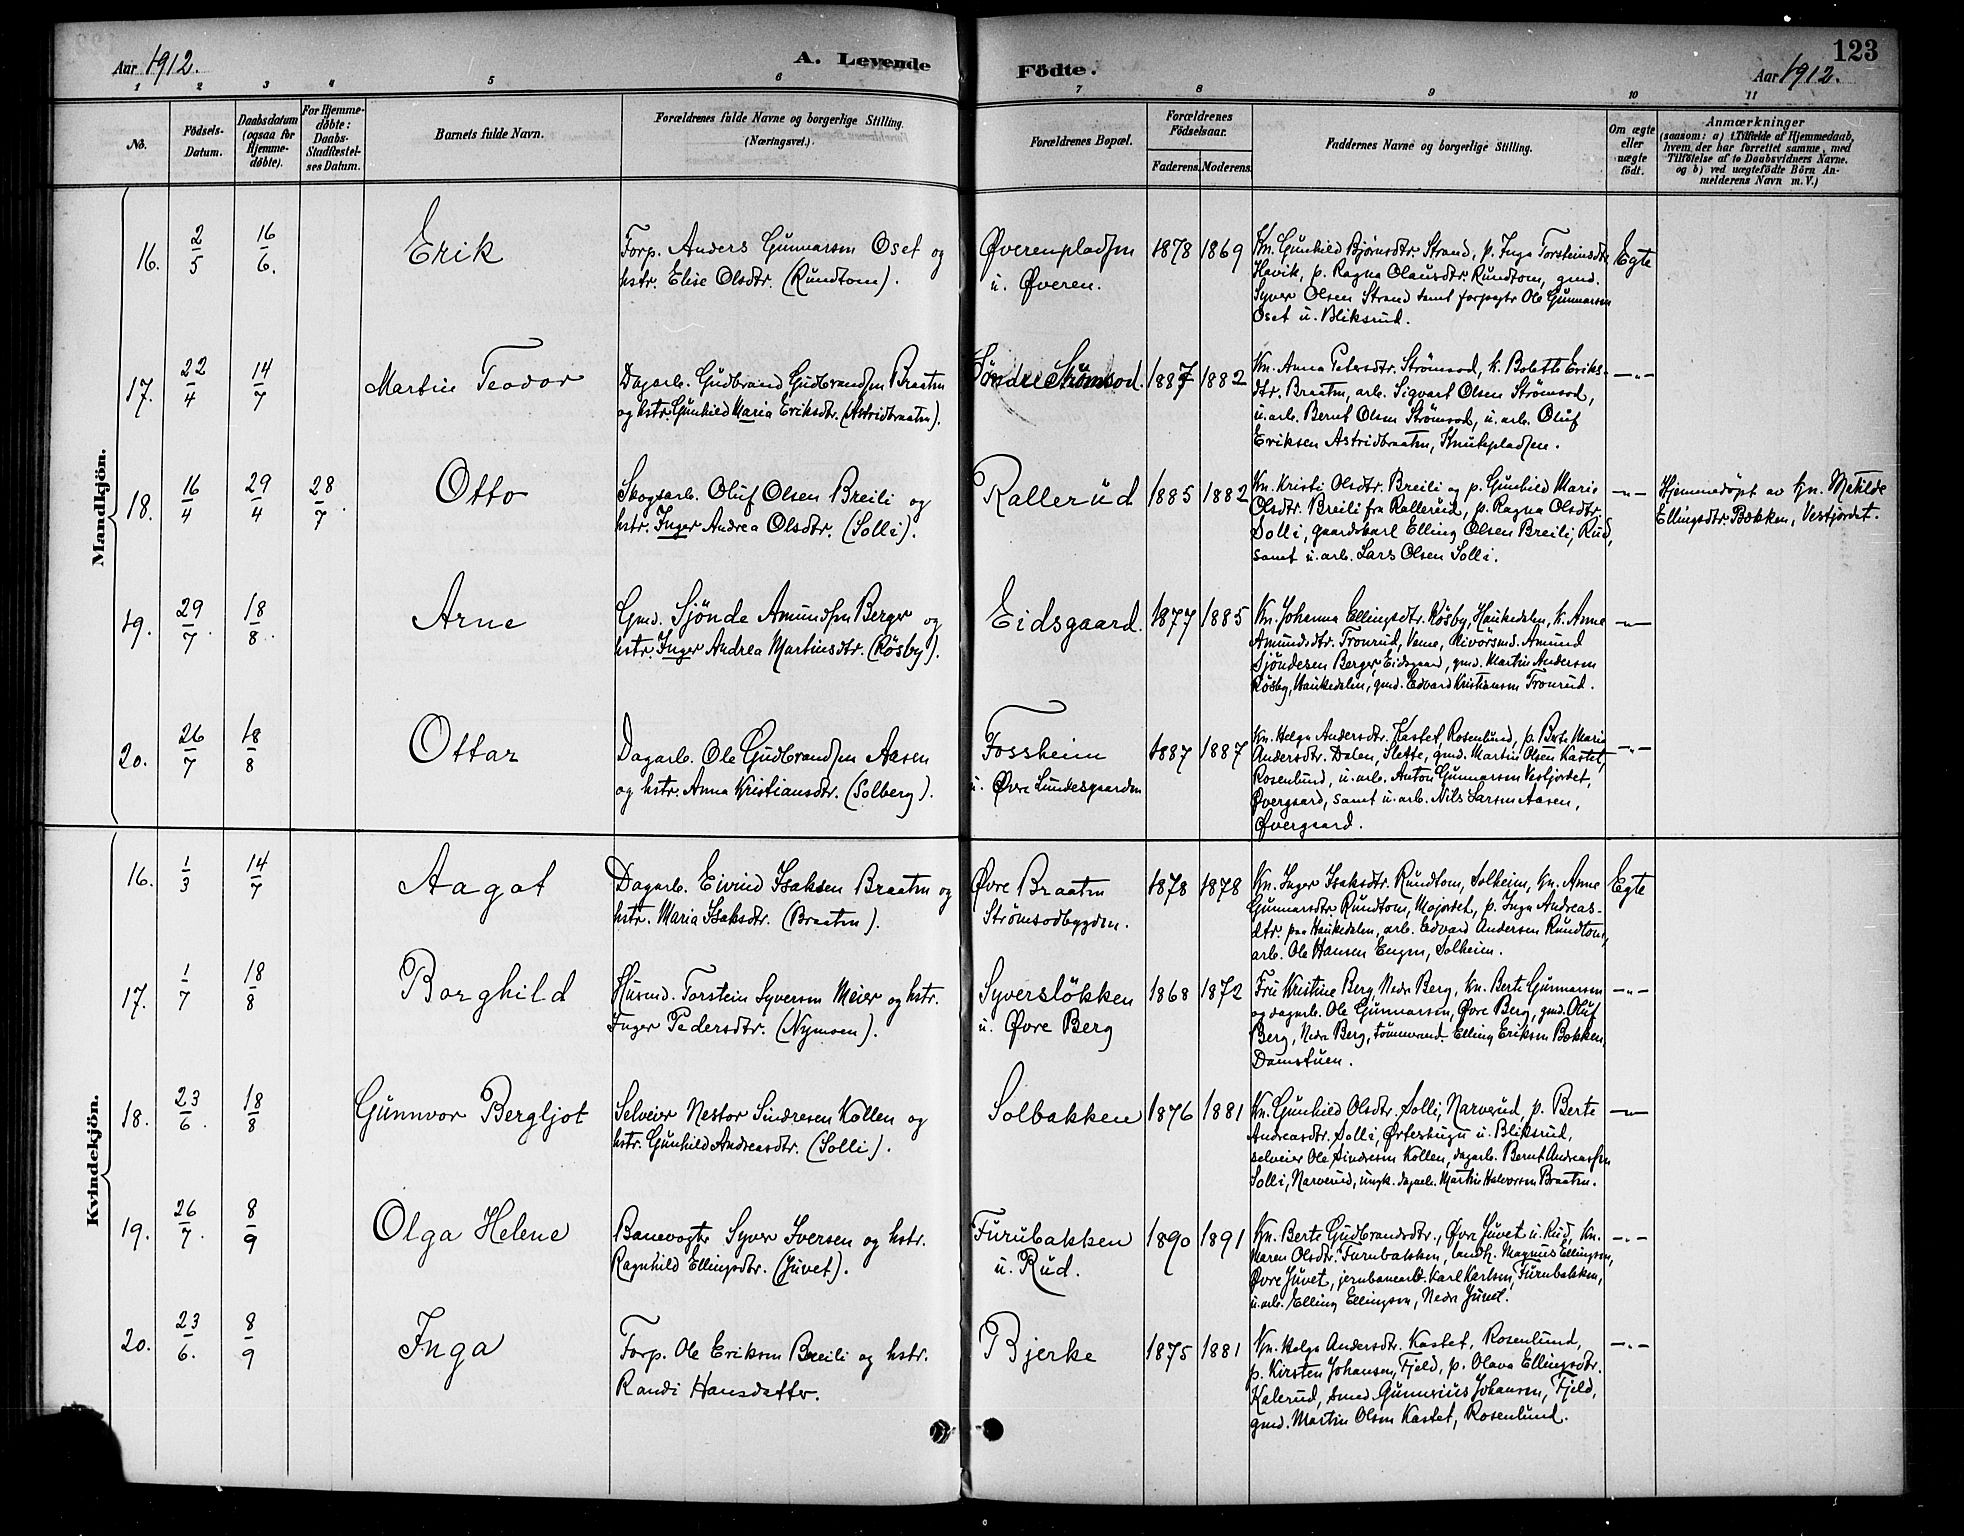 Aar 1912.
A. Levende Födte.
123
Aar 1912.
1 2 3 4 5 6 7 8 9 10 11
No.
Födsels-Datum.
Daabsdatum (ogsaa for Hjemmedøbte).
For Hjemmedøbte: Daabs-Stadfæstelses Datum.
Barnets fulde Navn.
Forældrenes fulde Navne og borgerlige Stilling.
(Næringsvei.)
Forældrenes Bopæl.
Forældrenes Födselsaar.
Faderens. Moderens.
Faddernes Navne og borgerlige Stilling.
Om ægte eller uægte födt.
Anmærkninger
(saasom: a) i Tilfælde af Hjemmedaab,
hvem der har forrettet samme, med
Tilföielse af to Daabsvidners Navne.
og b) ved uægtefödte Börn Anmelderens Navn m. V.)
Mandkjön.
16. 2/5 16/6. Erik
Forp. Anders Gunnarsen Oset og
hstr. Elise Olsdtr. (Rundtom).
Øverenpladsen
u. Øveren.
1878 1869
Kn. Gunhild Bjørnsdtr. Strand, p. Inga Torsteinsdtr.
Havik, p. Ragna Olausdtr. Rundtom, gmd.
Syver Olsen Strand samt forpagtr Ole Gunnarsen
Oset u. Bliksrud.
Egte
17. 22/4 14/7 Martin Teodor
Dagarb. Gudbrand Gudbrandsen Braaten
og hstr. Gunhild Maria Eriksdtr. (Astridbraaten).
Søndre Strømsod.
1887 1882
Kn. Anna Petersdtr. Strömsod, k. Bolette Eriks-
dtr. Braaten, arb. Sigvart Olsen Strömsod,
u. arb. Bernt Olsen Strömsod, u. arb. Oluf
Eriksen Astridbraaten, Knukepladsen.
—"—
18. 16/4 29/4 28/7. Otto
Skogsarb. Oluf Olsen Breili og
hstr. Inger Andrea Olsdtr. (Solli).
Rallerud
1885 1882
Kn. Kristi Olsdtr. Breili og p. Gunhild Marie
Olsdtr. Breili fra Rallerud, p. Ragna Olsdtr.
Solli, gaardskarl Elling Olsen Breili, Rud,
samt u. arb. Lars Olsen Solli.
—"—
Hjemmedöpt av kn. Matilde
Ellingsdtr. Bækken, Vestjordet.
19. 29/7. 18/8. Arne
Gmd. Sjönde Amundsen Berger og
hstr. Inger Andrea Martinsdtr. (Røsby).
Eidsgaard.
1877 1885
Kn. Johanna Ellingsdtr. Røsby, Haukedalen, k. Anne
Amundsdtr. Tronrud, Veme, Amund
Sjöndesen Berger, Eidsgaard, gmd. Martin Andersen
Røsby, Haukedalen, gmd. Edvard Kristiansen Tronrud.
—"—
20. 26/7 18/8 Ottar
Dagarb. Ole Gudbrandsen Aasen
og hstr. Anna Kristiansdtr. (Solberg).
Fossheim
u. Øvre Lundesgaarden
1887 1887
Kn. Helga Andersdtr. Kastet, Rosenlund, p. Berte Marie
Andersdtr. Dalen, Slette, gmd. Martin Olsen Kastet,
Rosenlund, u. arb. Anton Gunnarsen Vestjordet,
Øvergaard, samt u. arb. Nils Larsen Aasen,
Øvergaard.
—"—
Kvindekjön.
16. 1/3 14/7 Aagot
Dagarb. Eivind Isaksen Braaten og
hstr. Maria Isaksdtr. (Braaten).
Øvre Braaten
Strömsodbygden.
1878 1878
Kn. Inger Isaksdtr. Rundtom, Solheim, kn. Anne
Gunnarsdtr. Rundtom, Mojordet, p. Inga Andreas-
dtr. paa Haukedalen, arb. Edvard Andersen Rundtom,
arb. Ole Hansen Engen, Solheim.
Egte
17. 1/7 18/8 Borghild
Husmd. Torstein Syversen Meier og hstr.
Inger Pedersdtr. (Nymoen).
Syverslökken
u. Øvre Berg
1868 1872
Fru Kristine Berg, Nedre Berg, kn. Berte Gunnarsen
og dagarb. Ole Gunnarsen, Øvre Berg, gmd. Oluf
Berg, Nedre Berg, tömmermd. Elling Eriksen Bækken,
Damstuen.
—"—
18. 23/6. 18/8 Gunnvor Bergljot
Selveier Nestor Sindresen Kollen og
hstr. Gunhild Andreasdtr. (Solli).
Solbakken
1876 1881
Kn. Gunhild Olsdtr. Solli, Narverud, p. Berte
Andreasdtr. Solli, u. Bliksrud,
selveier Ole Sindresen Kollen, dagarb. Bernt Andreassen
Solli, Narverud, ungk. dagarb. Martin Halvorsen Braaten.
—"—
19. 26/7. 8/9 Olga Helene
Banevogter Syver Iversen og hstr.
Ragnhild Ellingsdtr. (Juvet).
Furubakken
u. Rud.
1890 1891
Kn. Berte Gudbrandsdtr., Øvre Juvet u. Rud, kn.
Maren Olsdtr. Furubakken, landh. Magnus Ellingsen,
Øvre Juvet, jernbanearb. Karl Karlsen, Furubakken,
u. arb. Elling Ellingsen, Nedre Juvet.
—"—
20. 23/6. 8/9 Inga
Forp. Ole Eriksen Breili og hstr.
Randi Hansdatter.
Bjerke
1875 1881
Kn. Helga Andersdtr. Kastet, Rosenlund,
p. Kirsten Johansen, Fjeld, p. Olava Ellingsdtr.
Kalerud, smed Gunerius Johansen, Fjeld,
gmd. Martin Olsen Kastet, Rosenlund.
—"—